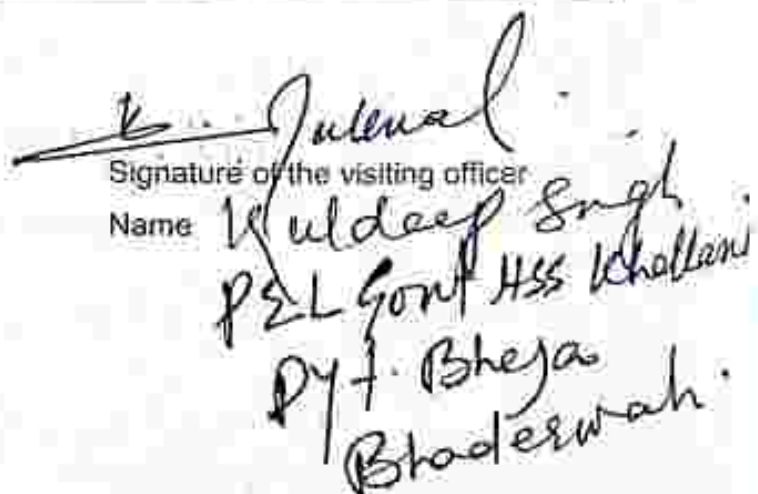 Signature of the visiting officer
Name Kuldeep Singh
PEL Govt HSS Khellani
Pyt. Bheja
Bhaderwah.